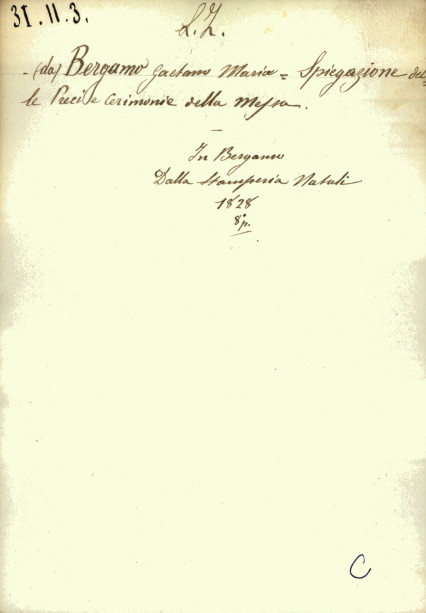 31. 11. 3.
L. Z.
- (da) Bergamo Gaetano Maria = Spiegazione del=
le Preci e Cerimonie della Messa.
In Bergamo
Dalla Stamperia Natali
1828
8° p.
C